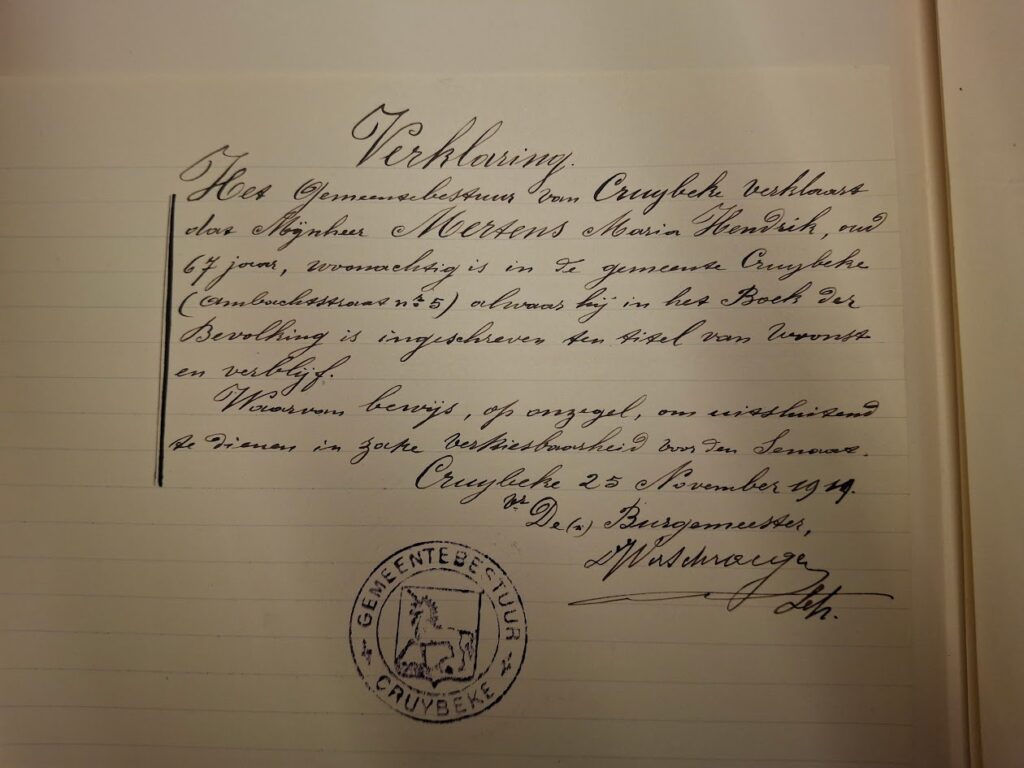 Verklaring.
Het Gemeentebestuur van Cruybeke verklaart
dat Mijnheer Mertens Maria Hendrik, oud
67 jaar, woonachtig is in de gemeente Cruybeke
(Ambachtstraat nr 5) alwaar hij in het Boek der
Bevolking is ingeschreven ten titel van woonst
en verblijf.
Waarvan bewijs, op onzegel, om uitsluitend
te dienen in zake verkiesbaarheid voor den Senaat.
Cruybeke 25 November 1919.
Vr De(n) Burgemeester,
Sch.
GEMEENTEBESTUUR
CRUYBEKE